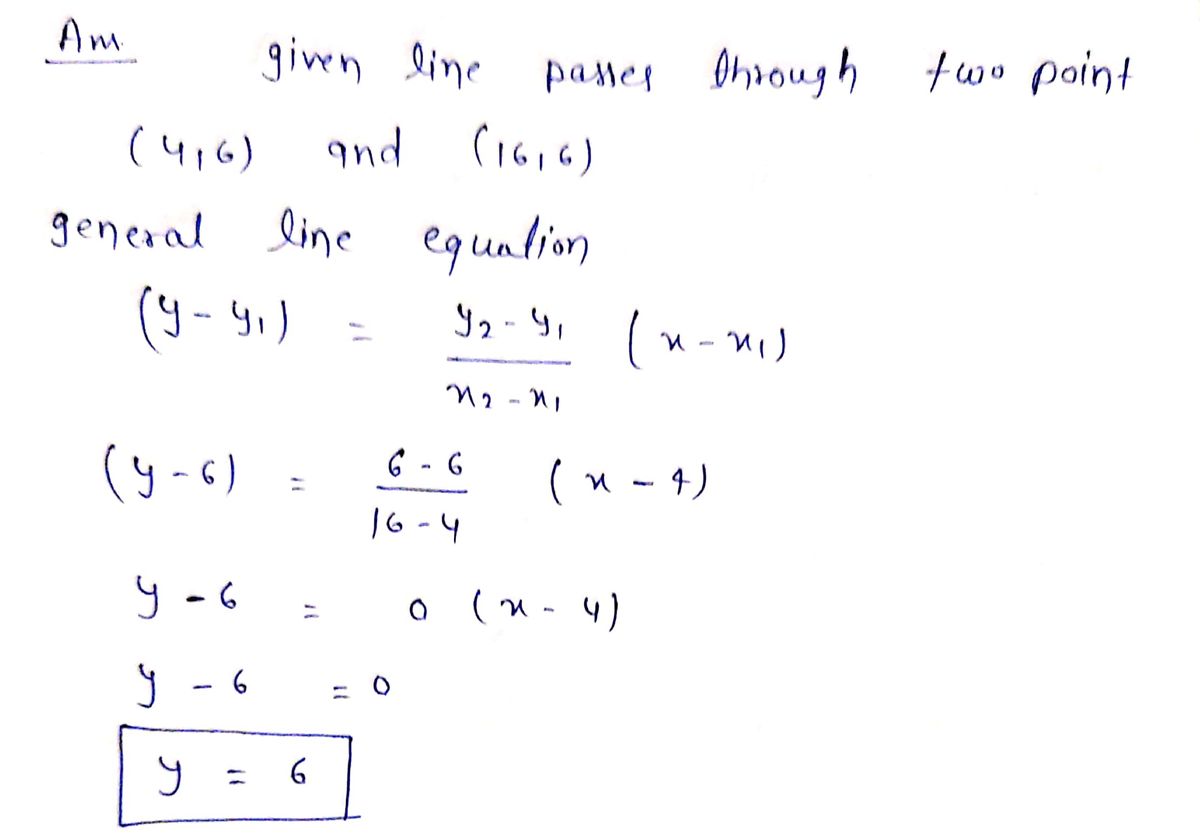 Ans.
given line passes through two point
(4,6) and (16,6)
general line equation
(y - y₁) = y₂ - y₁ / x₂ - x₁ (x - x₁)
(y - 6) = 6 - 6 / 16 - 4 (x - 4)
y - 6 = 0 (x - 4)
y - 6 = 0
y = 6